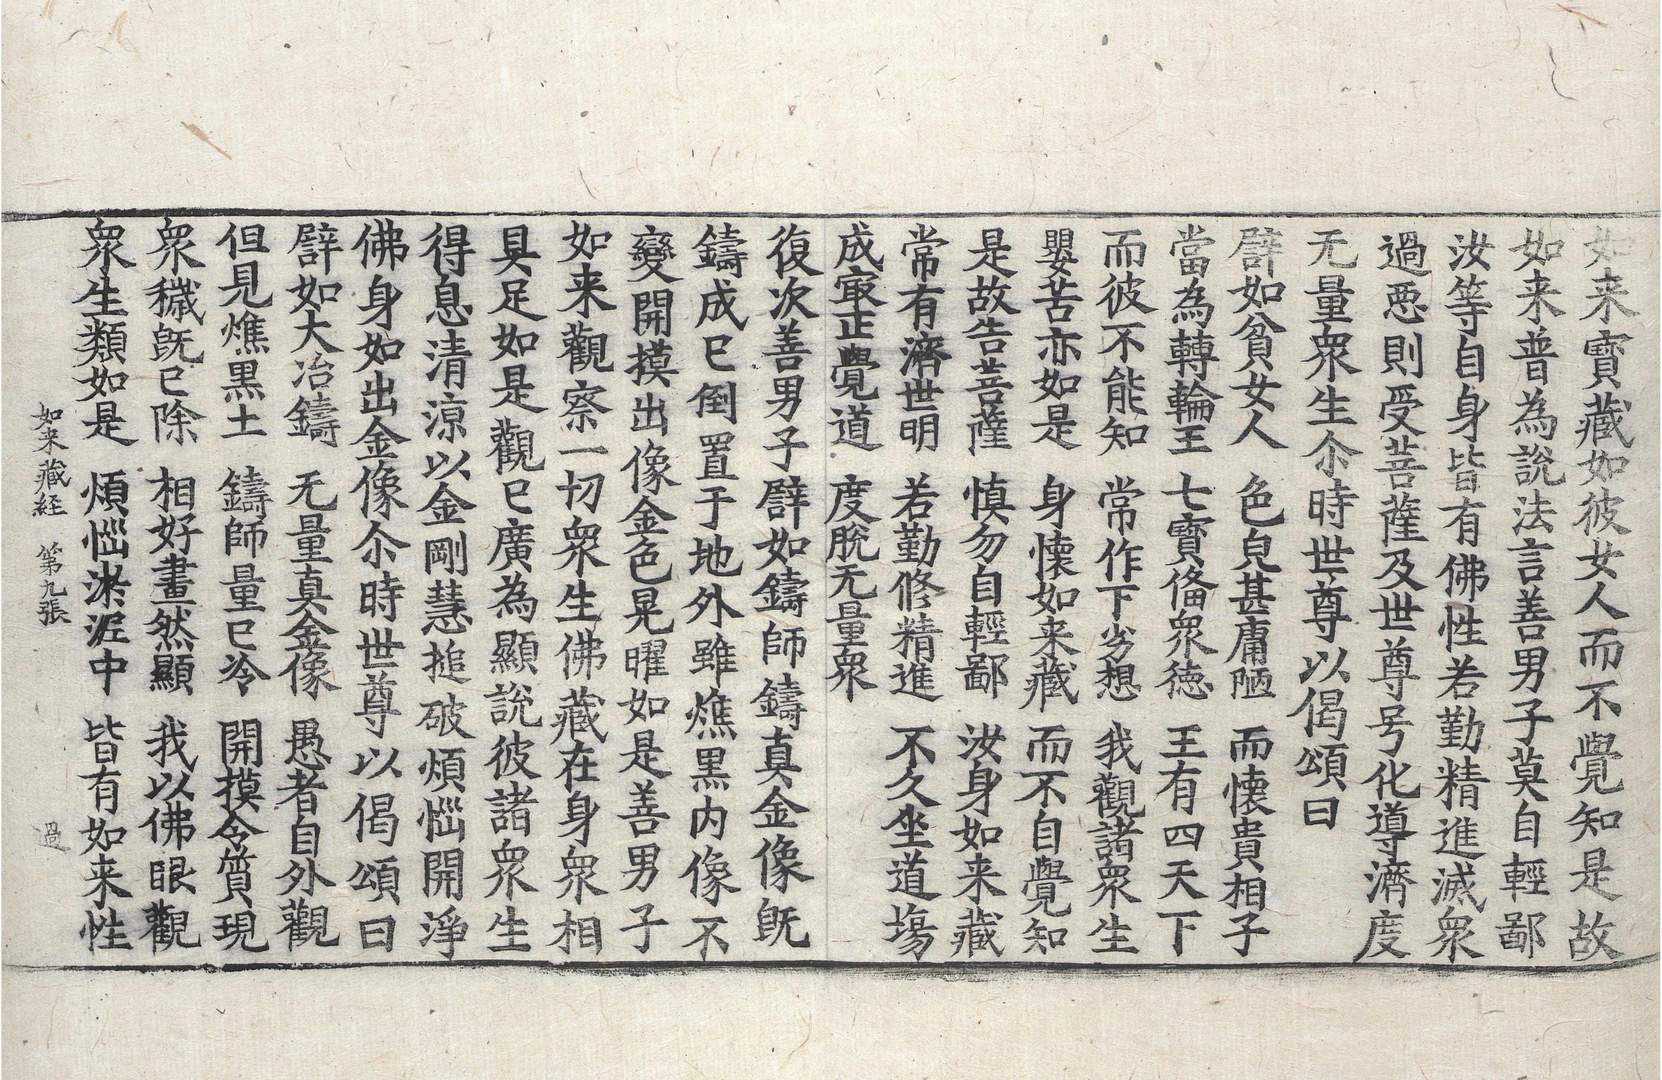 如来寳藏如彼女人而不覺知是故
如来普為說法言善男子莫自輕鄙
汝等自身皆有佛性若勤精進滅衆
過惡則受菩薩及世尊号化導濟度
无量衆生尒時世尊以偈頌曰
譬如貧女人　色皃甚庸陋　而懷貴相子
當為轉輪王　七寳俻衆徳　王有四天下
而彼不能知　常作下劣想　我觀諸衆生
嬰苦亦如是　身懷如来藏　而不自覺知
是故告菩薩　慎勿自輕鄙　汝身如来藏
常有濟世明　若勤修精進　不久坐道場
成㝡正覺道　度脫无量衆
復次善男子譬如鑄師鑄真金像旣
鑄成已倒置于地外雖燋黒内像不
變開摸出像金色晃曜如是善男子
如来觀察一切衆生佛藏在身衆相
具足如是觀已廣為顯說彼諸衆生
得息清涼以金剛慧搥破煩惱開淨
佛身如出金像尒時世尊以偈頌曰
譬如大冶鑄　无量真金像　愚者自外觀
但見燋黒土　鑄師量已冷　開摸令質現
衆穢旣已除　相好畫然顯　我以佛眼觀
衆生類如是　煩惱淤泥中　皆有如来性
如来藏経　第九張　過